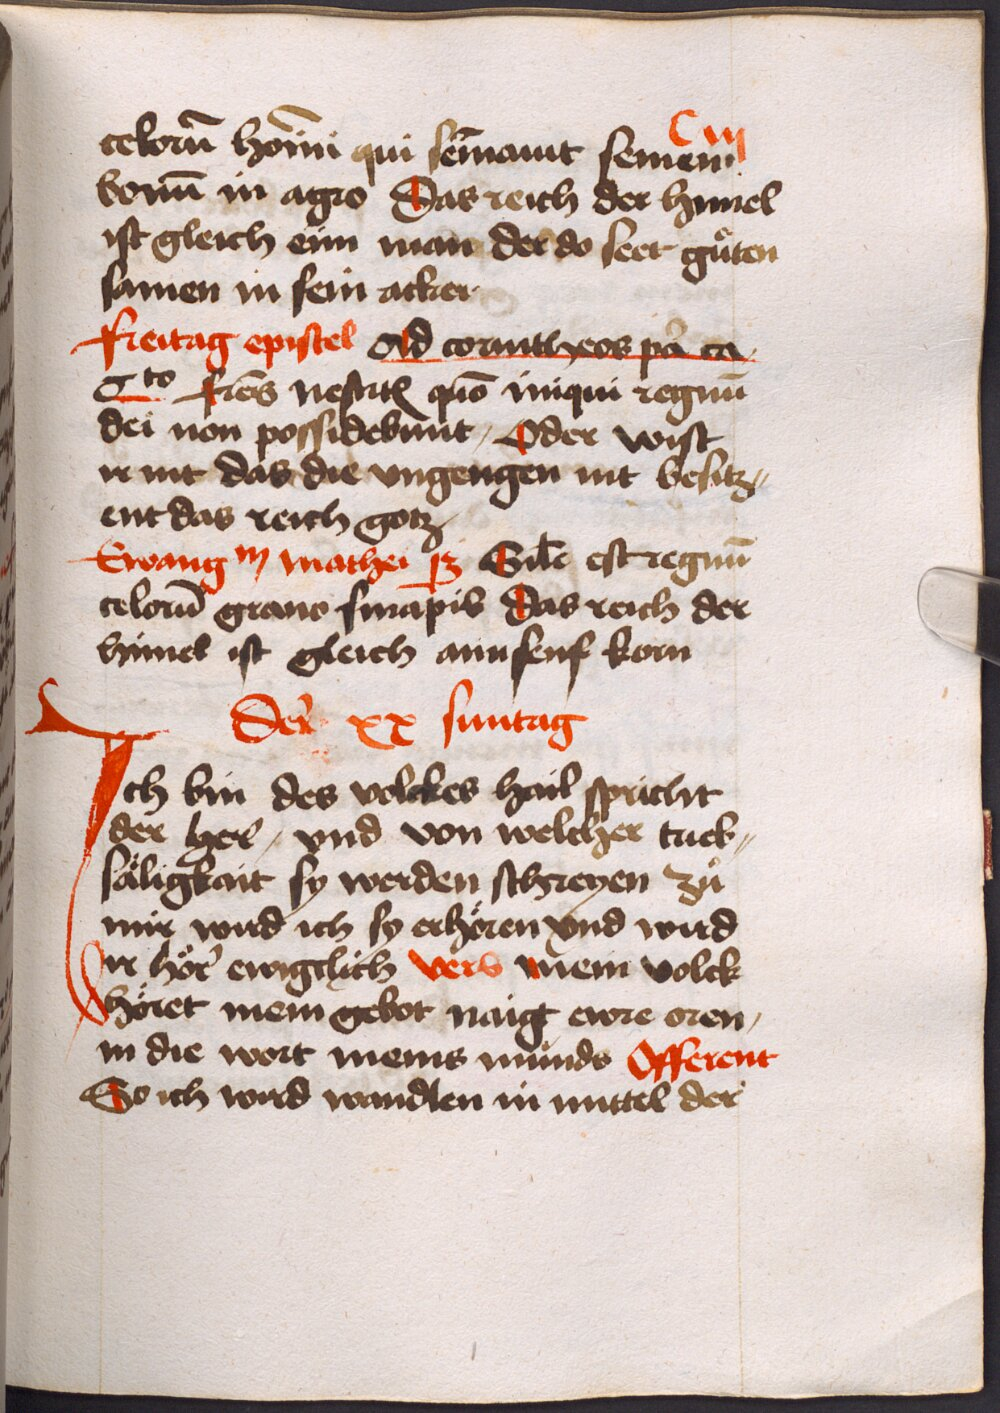 C iij
celorū hoīni qui sēmauit semen
bonū in agro Das reich der himel
ist gleich eim man der do seet gůten
samen in sein acker
freitag epistel Ad corintheos pͥa ca
6to fr̄es nescitꝭ quō iniqui regnū
dei non possidebunt / Oder wist
ir nit das die vngengen nit besitz//
ent das reich gotz
Ewang m mathei 13 Sil̄e est regnū
celorū grano sinapis das reich der
himel ist gleich aim senf korn
Der xx suntag
Ich bin des volckes hail spricht
der her / vnd von welcher trueb//
säligkait sy werden schreyen zů
mir wird ich sy erhören vnd wird
ir hör ewigclich vers mein volck
höret mein gebot naigt ewre oren /
in die wort meins munds Offerent
So ich wird wandlen in mittel der